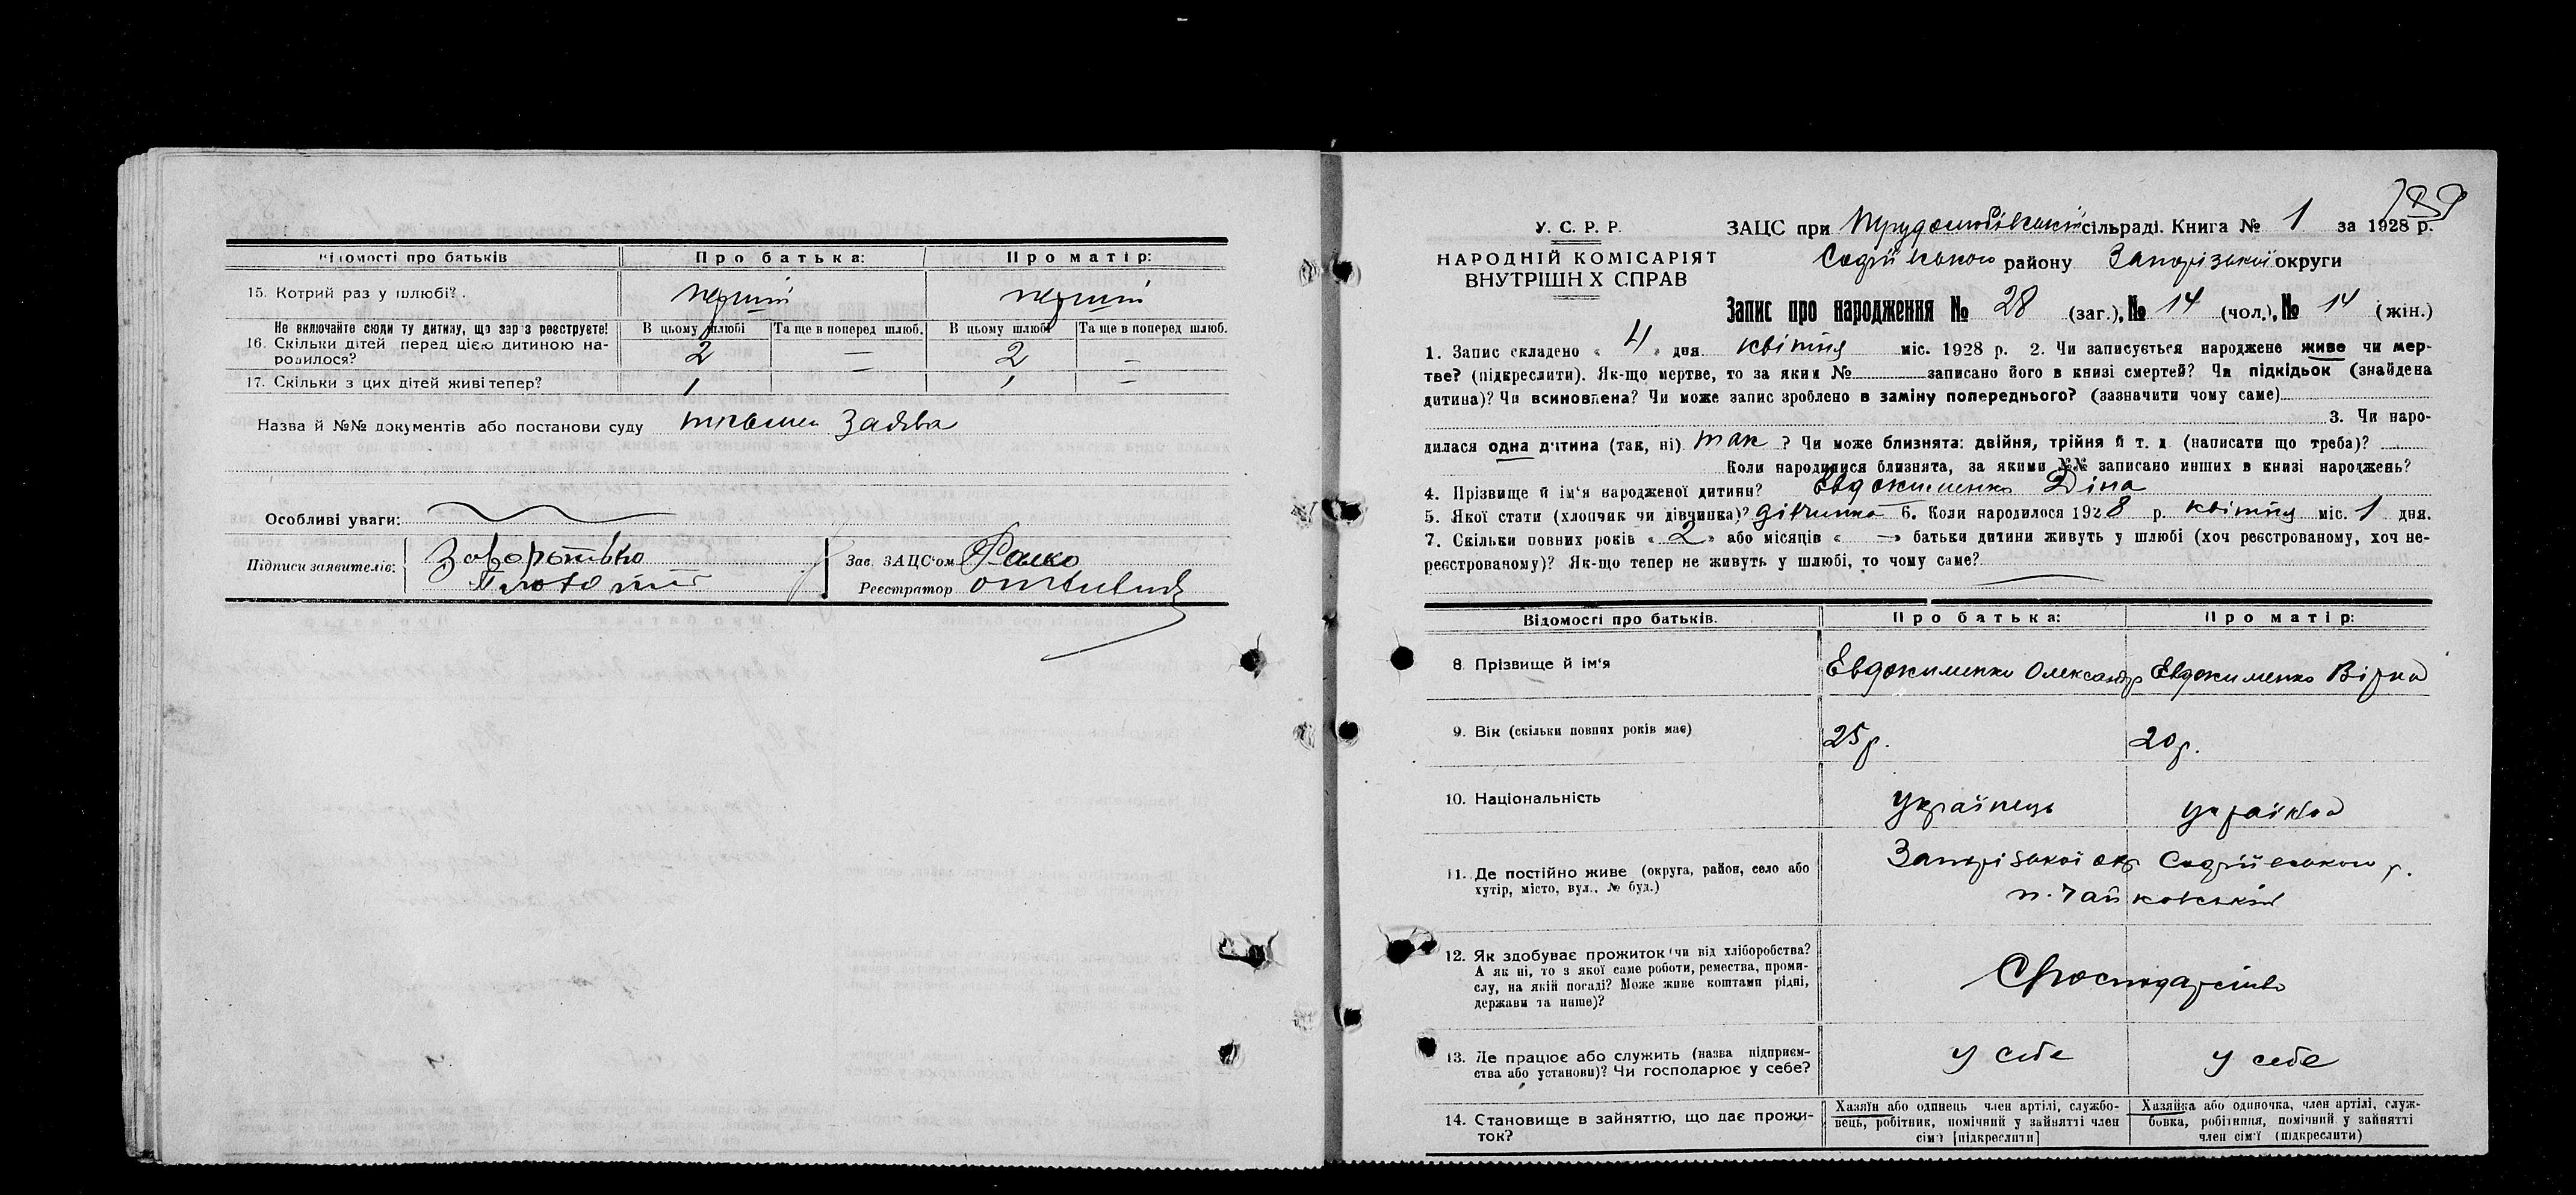 Відомості про батьків Про батька: Про матір:
15. Котрий раз у шлюбі? перший перший
Не включайте сюди ту дитину, що зараз реєструєте! В цьому шлюбі Та ще в поперед шлюб. В цьому шлюбі Та ще в поперед шлюб.
16. Скільки дітей перед цією дитиною на-
родилося? 2 — 2 —
17. Скільки з цих дітей живі тепер? 1 — 1 —
Назва й №№ документів або постанови суду заява
Особливі уваги:
Підписи заявителів: Зав. ЗАЦС'ом
Реєстратор
У. С. Р. Р.
НАРОДНІЙ КОМІСАРІЯТ
ВНУТРІШН Х СПРАВ
ЗАЦС при Трудолюбівській сільраді. Книга № 1 за 1928 р.
Софіївського району Запорізької округи
Запис про народження № 28 (заг.), № 14 (чол.), № 14 (жін.)
1. Запис складено « 4 » дня квітня міс. 1928 р. 2. Чи записується народжене живе чи мер-
тве? (підкреслити). Як-що мертве, то за яким № записано його в книзі смертей? Чи підкідьок (знайдена
дитина)? Чи всиновлена? Чи може запис зроблено в заміну попереднього? (зазначити чому саме)
3. Чи наро-
дилася одна дитина (так, ні) так ? Чи може близнята: двійня, трійня й т. д. (написати що треба)?
Коли народилися близнята, за якими №№ записано инших в книзі народжень?
4. Прізвище й ім'я народженої дитини? Евдокименко Діна
5. Якої стати (хлопчик чи дівчинка)? дівчинка 6. Коли народилося 1928 р. квітня міс. 1 дня.
7. Скільки повних років « 2 » або місяців « — » батьки дитини живуть у шлюбі (хоч реєстрованому, хоч не-
реєстрованому)? Як-що тепер не живуть у шлюбі, то чому саме?
Відомості про батьків. Про батька: Про матір:
8. Прізвище й ім'я Евдокименко Олександр Евдокименко Вірка
9. Вік (скільки повних років має) 25 р. 20 р.
10. Національність українець українка
11. Де постійно живе (округа, район, село або
хутір, місто, вул., № буд.) Запорізької окр Софіївського р.
п. Чайковський
12. Як здобуває прожиток (чи від хліборобства?
А як ні, то з якої саме роботи, ремества, проми-
слу, на якій посаді? Може живе коштами рідні,
держави та инше)?
13. Де працює або служить (назва підприєм-
ства або установи)? Чи господарює у себе? у себе у себе
14. Становище в зайняттю, що дає прожи-
ток?
Хазяїн або одинець член артілі, службо-
вець, робітник, помічний у зайнятті член
сім'ї [підкреслити]
Хазяйка або одиночка, член артілі, служ-
бовка, робітниця, помічний у зайнятті
член сім'ї (підкреслити)